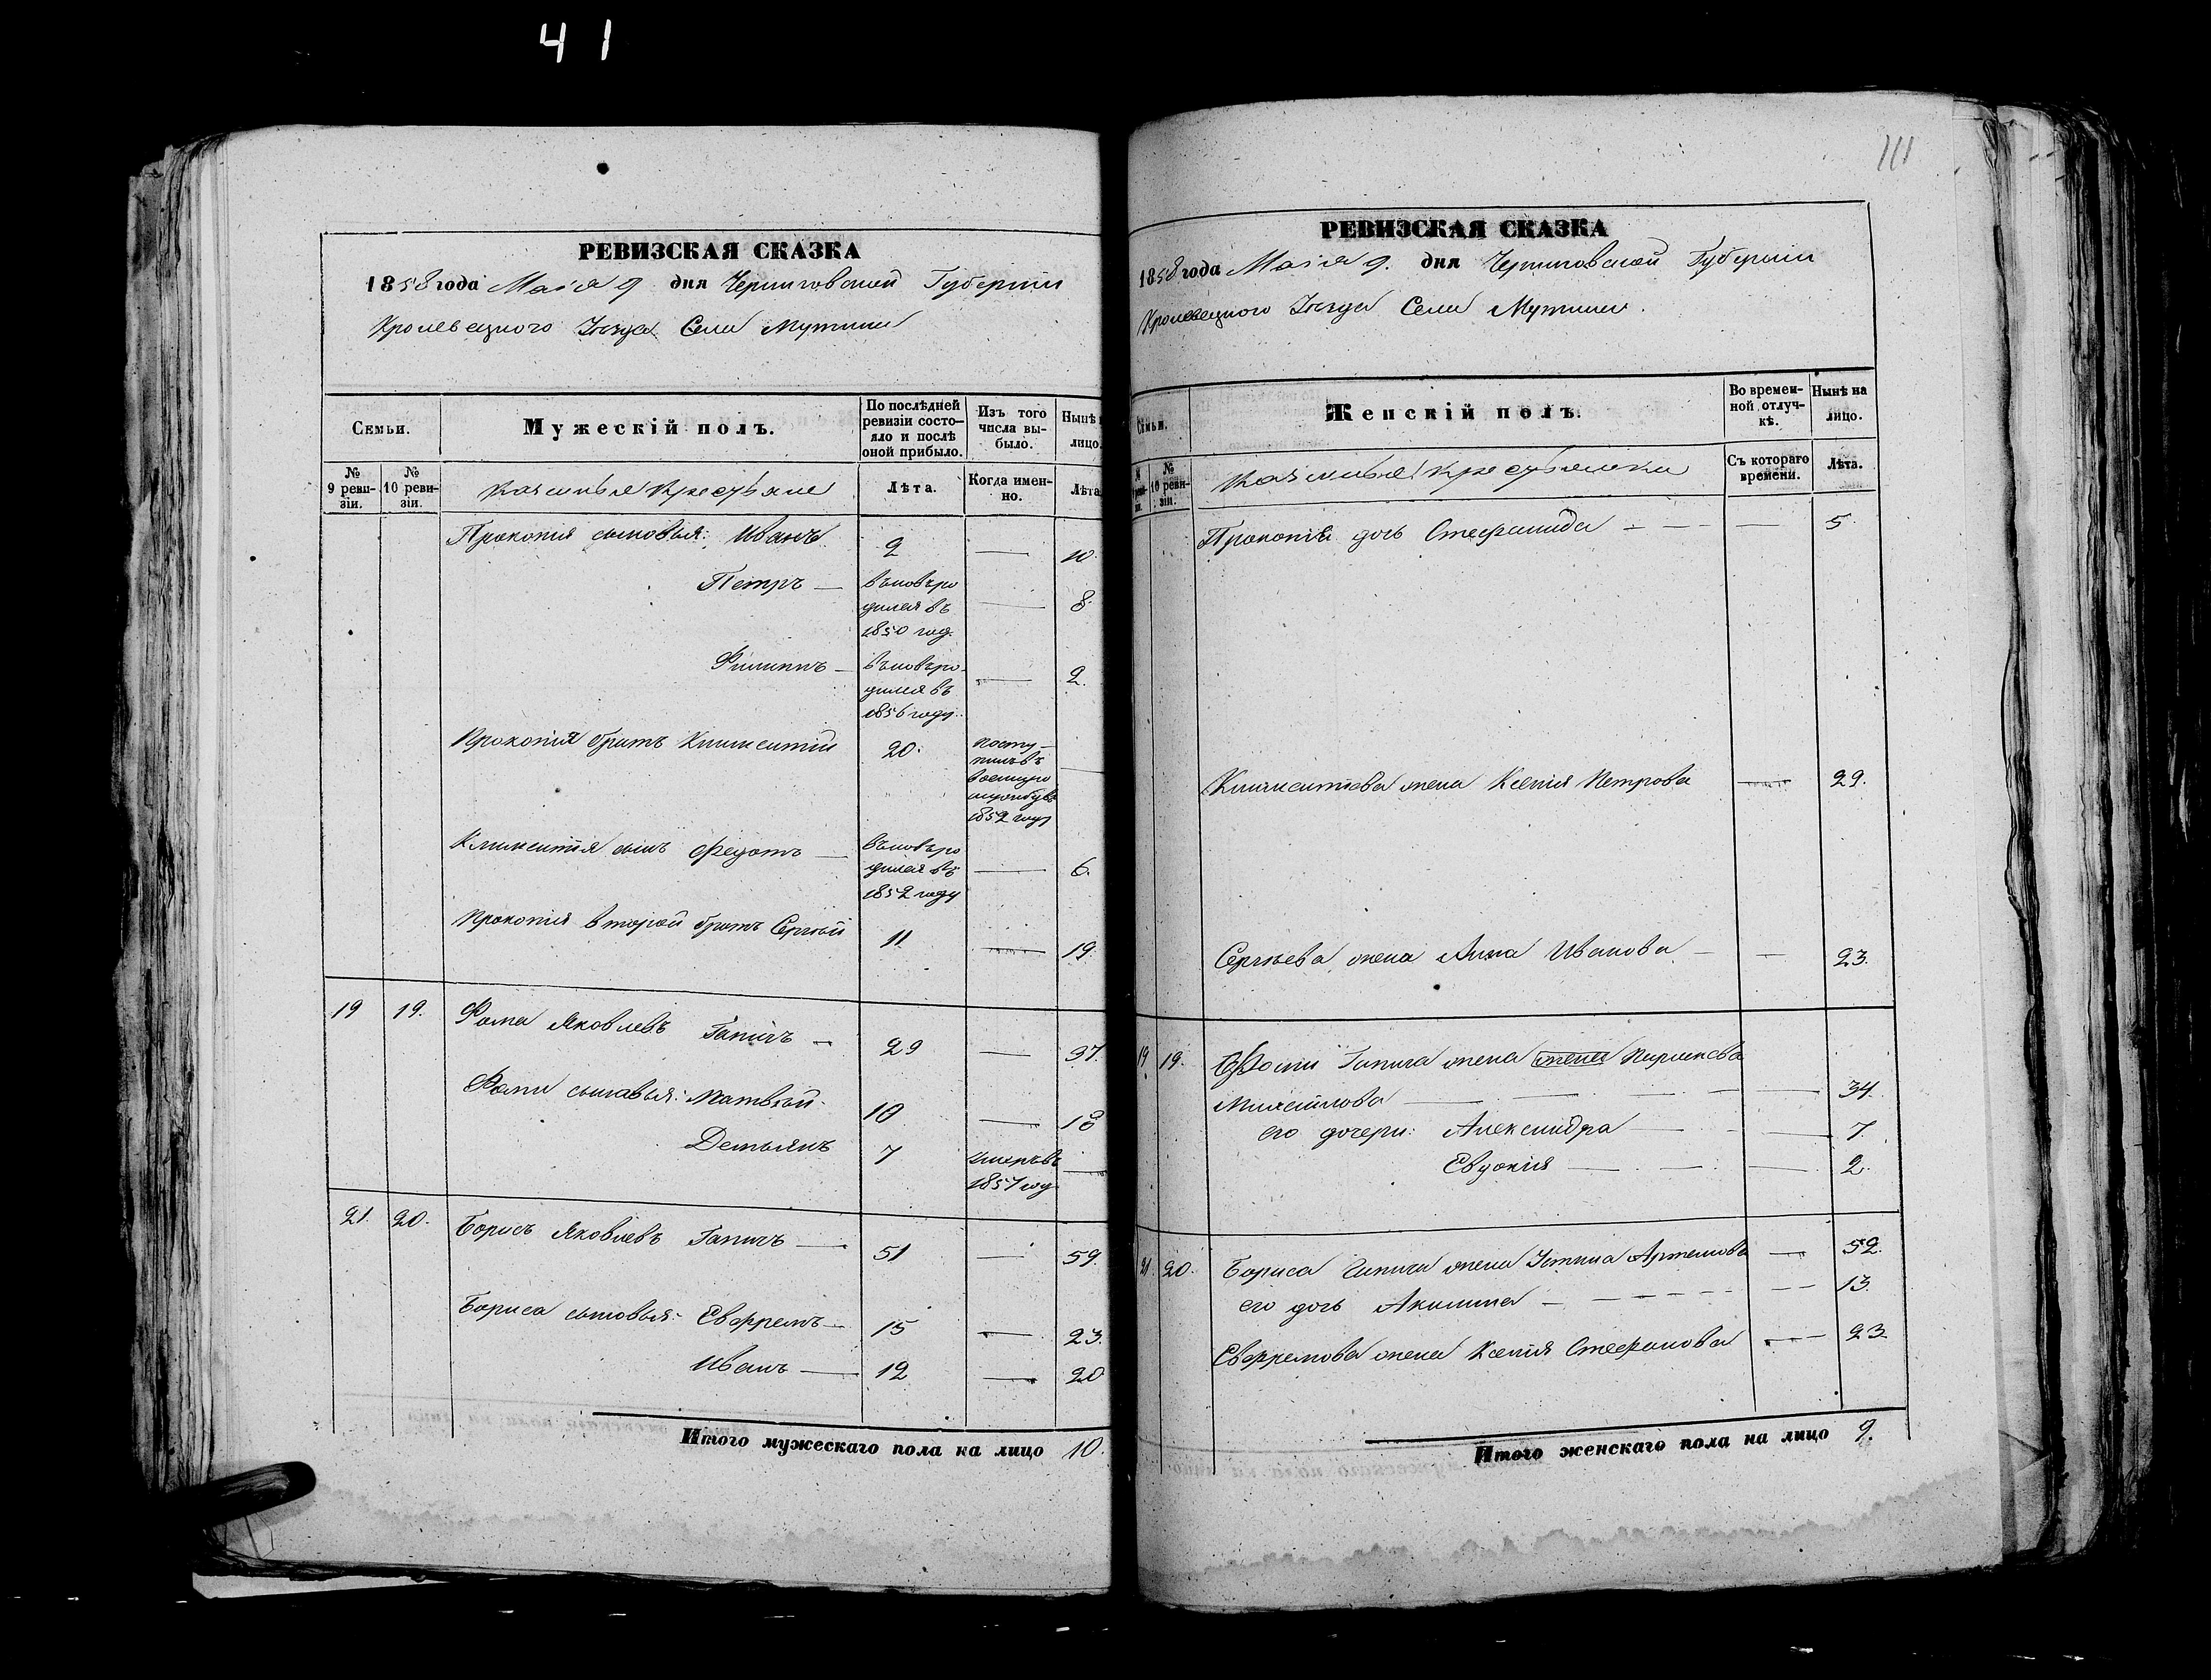 41
РЕВИЗСКАЯ СКАЗКА
1858 года Маія 9 дня Черниговской Губерніи
Кролевецкого Уѣзда Села Мутина
Семьи.
Мужескій полъ.
По послѣдней ревизіи состояло и послѣ оной прибыло.
Изъ того числа выбыло.
Нынѣ
лицо.
№ 9 ревизіи.
№ 10 ревизіи.
Казенные Крестьяне
Лѣта.
Когда именно.
Лѣта
Прокопія сыновья: Иванъ 2 — 10.
Петръ — вновь родился въ 1850 год. — 8.
Филиппъ — вновь родился въ 1856 году. — 2.
Прокопія братъ Климентій 20. поступилъ въ 1852 году —
Климентія сынъ Федотъ — вновь родился въ 1852 году — 6.
Прокопія второй братъ Сергѣй 11 — 19.
19 19. Фома Яковлевъ Гапичъ — 29 — 37.
Фомы сыновья: Матвѣй 10 — 18
Демьянъ 7 умеръ въ 1857 год —
21. 20. Борисъ Яковлевъ Гапичъ — 51 — 59.
Бориса сыновья: Евфремъ — 15 — 23.
Иванъ — 12 — 20
Итого мужескаго пола на лицо 10.
111
РЕВИЗСКАЯ СКАЗКА
1858 года Маія 9. дня Черниговской Губерніи
Кролевецкого Уѣзда Села Мутина.
Семьи.
Женскій полъ.
Во временной отлучкѣ.
Нынѣ на лицо.
№ 10 ревизіи.
Казенные Крестьянки
Съ котораго времени.
Лѣта.
Прокопія дочь Стефанида — — 5.
Климентіева жена Ксенія Петрова — 29.
Сергѣева жена Анна Иванова — — 23.
19 19. Фомы Гапича жена жена
Михайлова — — 34.
его дочери: Александра — — 7.
Евдокія — — 2.
21. 20. Бориса Гапича жена Устина Артемова — 52.
его дочь Акилина — — 13.
Евфремова жена Ксенія Стефанова — 23
Итого женскаго пола на лицо 9.